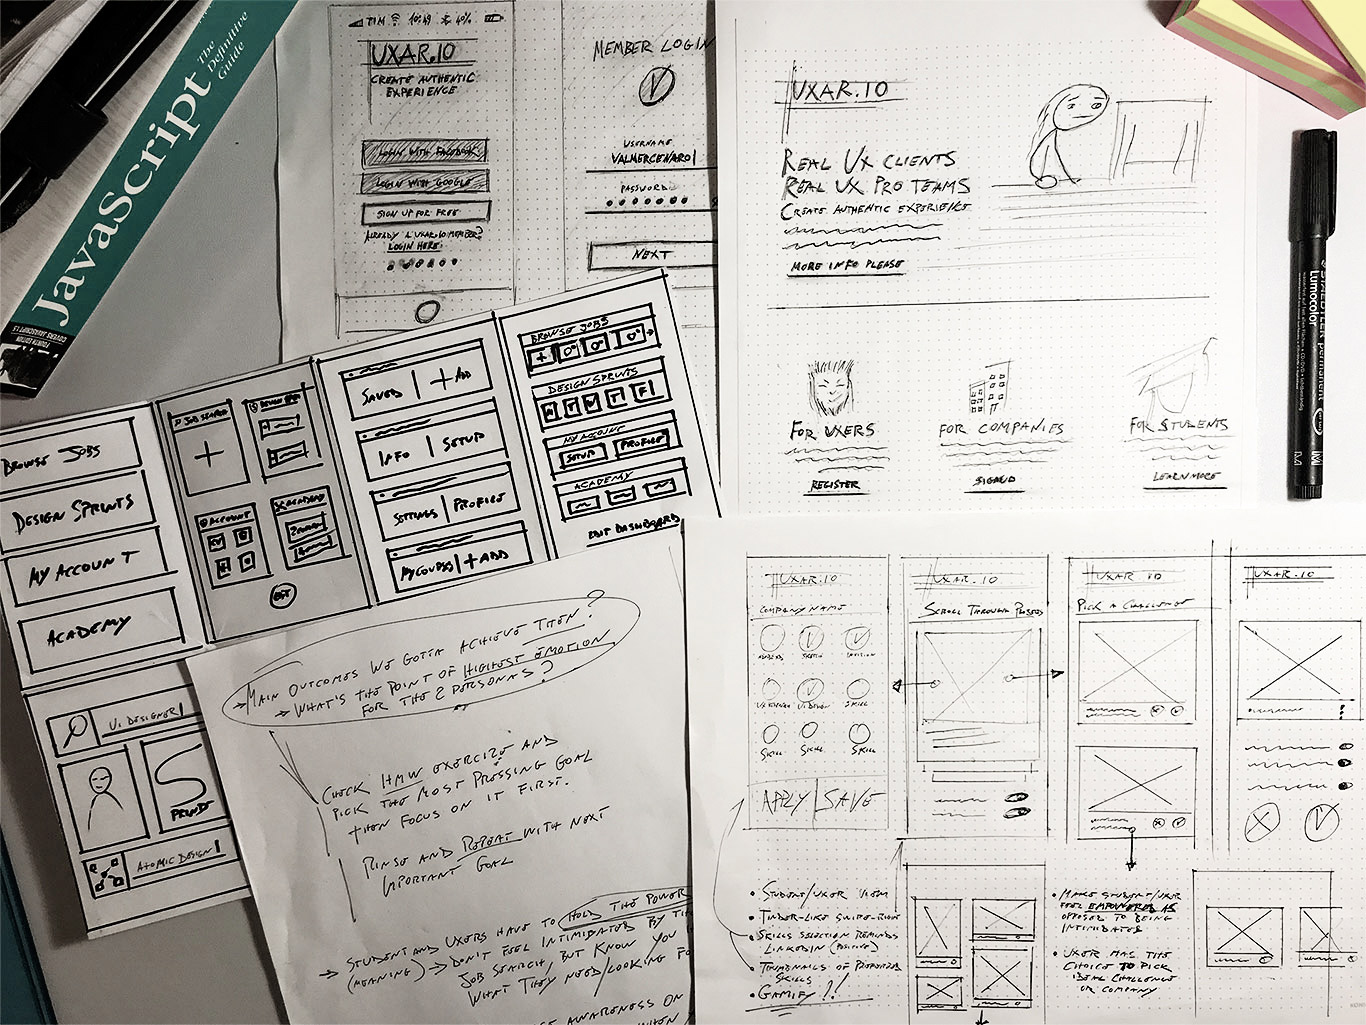 JavaScript
The
Definitive
Guide
FOURTH EDITION
COVERS JAVASCRIPT 1.5
TIM 10:49 40%
UXAR.IO
CREATE AUTHENTIC
EXPERIENCE
LOGIN WITH FACEBOOK
LOGIN WITH GOOGLE
SIGN UP FOR FREE
ALREADY A UXAR.IO MEMBER?
LOGIN HERE.
MEMBER LOGIN
USERNAME
VALMERCENARO
PASSWORD
NEXT
UXAR.IO
REAL UX CLIENTS
REAL UX PRO TEAMS
CREATE AUTHENTIC EXPERIENCE
MORE INFO PLEASE
FOR UXERS
REGISTER
FOR COMPANIES
SIGNUP
FOR STUDENTS
LEARN MORE
STAEDTLER permanent
Lumocolor
M
BROWSE JOBS
DESIGN SPRINTS
MY ACCOUNT
ACADEMY
JOB SEARCH
ACCOUNT
EDIT
SAVED + ADD
INFO SETUP
SETTINGS PROFILE
MY COURSES + ADD
BROWSE JOBS
DESIGN SPRINTS
M T W T F
MY ACCOUNT
SETUP PROFILE
ACADEMY
EDIT DASHBOARD
UI DESIGNER
SPRINT
ATOMIC DESIGN
→ MAIN OUTCOMES WE GOTTA ACHIEVE THEN?
→ WHAT'S THE POINT OF HIGHEST EMOTION
FOR THE 2 PERSONAS?
CHECK HMW EXERCISE AND
PICK THE MOST PRESSING GOAL
THEN FOCUS ON IT FIRST.
RINSE AND REPEAT WITH NEXT
IMPORTANT GOAL
→ STUDENT AND UXERS HAVE TO HOLD THE POWER
(MEANING) → DON'T FEEL INTIMIDATED BY THE
JOB SEARCH, BUT KNOW YOU
WHAT THEY NEED/LOOKING FO
AWARENESS ON
WHEN
UXAR.IO
COMPANY NAME
SKILL SKILL SKILL
APPLY SAVE
UXAR.IO
SCROLL THROUGH POSTED
UXAR IO
PICK A CHALLENGE
UXAR.IO
• STUDENT/UXER VIEW
• TINDER-LIKE SWIPE-RIGHT
• SKILLS SELECTION REMINDS
LINKEDIN (POSITIVE)
• THUMBNAILS OF PREFERRED
SKILLS
• GAMIFY!!
• MAKE STUDENT/UXER
FEEL EMPOWERED AS
OPPOSED TO BEING
INTIMIDATED
• UXER HAS THE
CHOICE TO PICK
IDEAL CHALLENGE
OR COMPANY